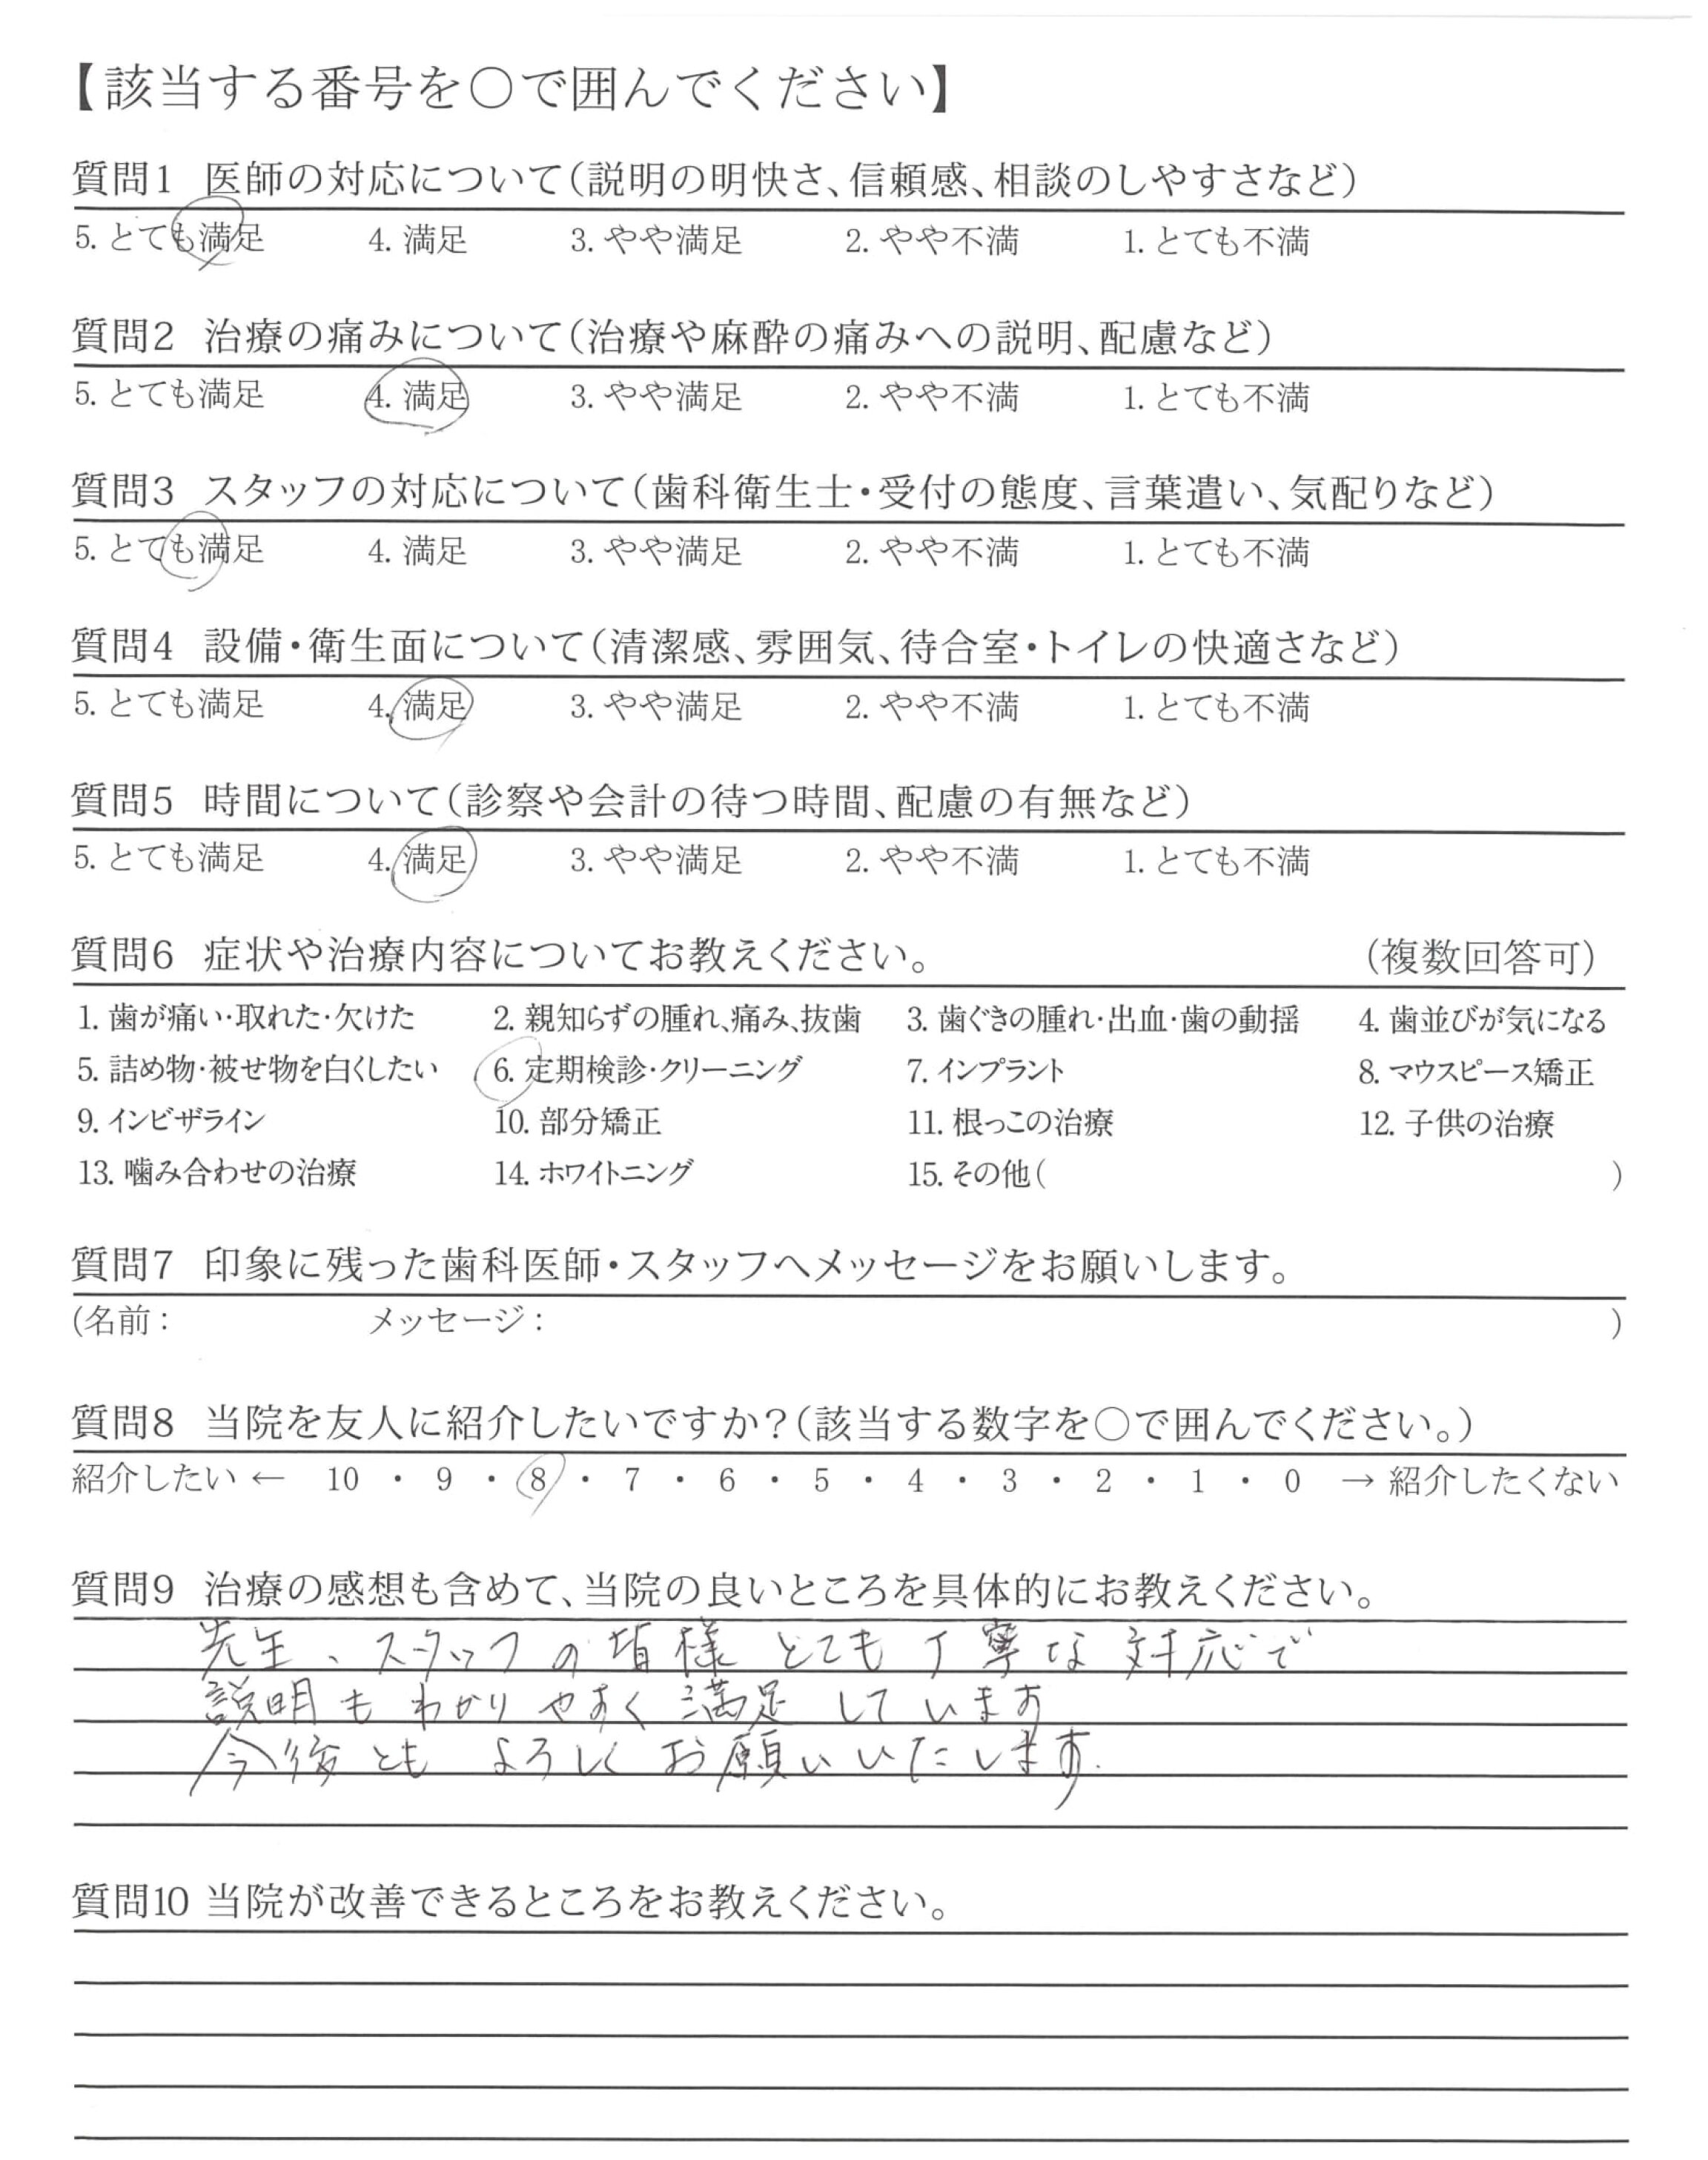 【該当する番号を○で囲んでください】
質問1 医師の対応について（説明の明快さ、信頼感、相談のしやすさなど）
5. とても満足 4. 満足 3. やや満足 2. やや不満 1. とても不満
質問2 治療の痛みについて（治療や麻酔の痛みへの説明、配慮など）
5. とても満足 4. 満足 3. やや満足 2. やや不満 1. とても不満
質問3 スタッフの対応について（歯科衛生士・受付の態度、言葉遣い、気配りなど）
5. とても満足 4. 満足 3. やや満足 2. やや不満 1. とても不満
質問4 設備・衛生面について（清潔感、雰囲気、待合室・トイレの快適さなど）
5. とても満足 4. 満足 3. やや満足 2. やや不満 1. とても不満
質問5 時間について（診察や会計の待つ時間、配慮の有無など）
5. とても満足 4. 満足 3. やや満足 2. やや不満 1. とても不満
質問6 症状や治療内容についてお教えください。 （複数回答可）
1. 歯が痛い・取れた・欠けた 2. 親知らずの腫れ、痛み、抜歯 3. 歯ぐきの腫れ・出血・歯の動揺 4. 歯並びが気になる
5. 詰め物・被せ物を白くしたい 6. 定期検診・クリーニング 7. インプラント 8. マウスピース矯正
9. インビザライン 10. 部分矯正 11. 根っこの治療 12. 子供の治療
13. 噛み合わせの治療 14. ホワイトニング 15. その他（ ）
質問7 印象に残った歯科医師・スタッフへメッセージをお願いします。
（名前： メッセージ： ）
質問8 当院を友人に紹介したいですか？（該当する数字を○で囲んでください。）
紹介したい ← 10 ・ 9 ・ 8 ・ 7 ・ 6 ・ 5 ・ 4 ・ 3 ・ 2 ・ 1 ・ 0 → 紹介したくない
質問9 治療の感想も含めて、当院の良いところを具体的にお教えください。
先生、スタッフの皆様とても丁寧な対応で
説明もわかりやすく満足しています
今後ともよろしくお願いいたします.
質問10 当院が改善できるところをお教えください。